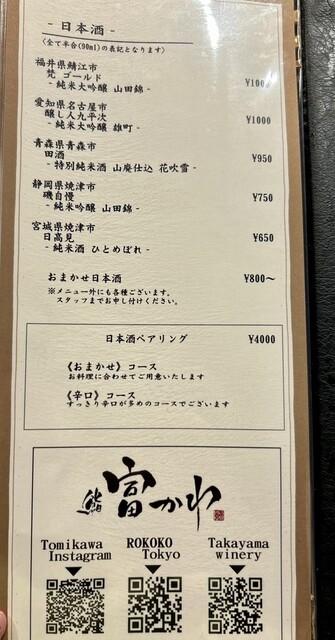 - 日本酒 -
〈全て半合(90ml)の表記となります〉
福井県鯖江市
梵 ゴールド
- 純米大吟醸 山田錦 -
¥1000
愛知県名古屋市
醸し人九平次
- 純米大吟醸 雄町 -
¥1000
青森県青森市
田酒
- 特別純米酒 山廃仕込 花吹雪 -
¥950
静岡県焼津市
磯自慢
- 純米吟醸 山田錦 -
¥750
宮城県焼津市
日高見
- 純米酒 ひとめぼれ -
¥650
おまかせ日本酒
¥800〜
※メニュー外にも各種ございます。
スタッフまでお申し付けください。
日本酒ペアリング
¥4000
《おまかせ》コース
お料理に合わせてご用意いたします
《辛口》コース
すっきり辛口が多めのコースでございます
鮨 富かわ
Tomikawa
Instagram
ROKOKO
Tokyo
Takayama
winery